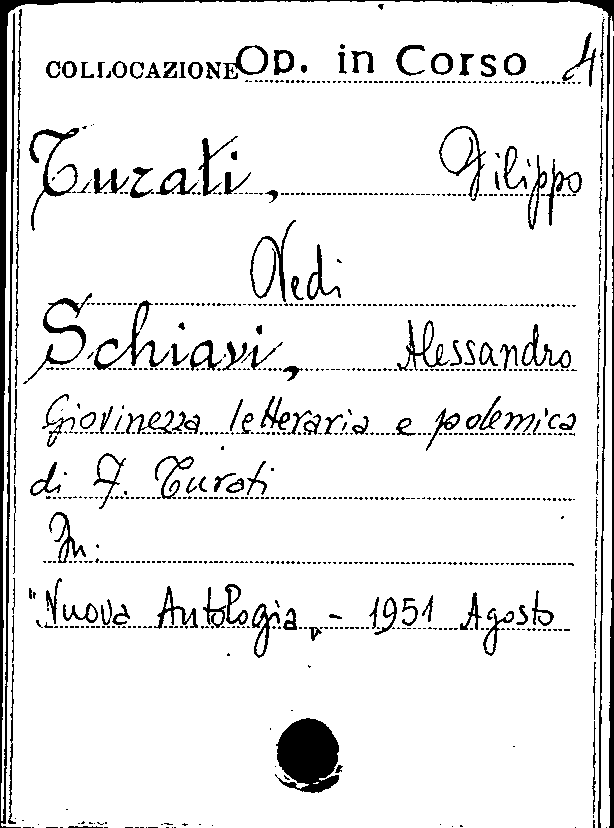 COLLOCAZIONE Op. in Corso 4
Turati, Filippo
Vedi
Schiavi, Alessandro
Giovinezza letteraria e polemica
di F. Turati
In:
"Nuova Antologia„ - 1951 Agosto